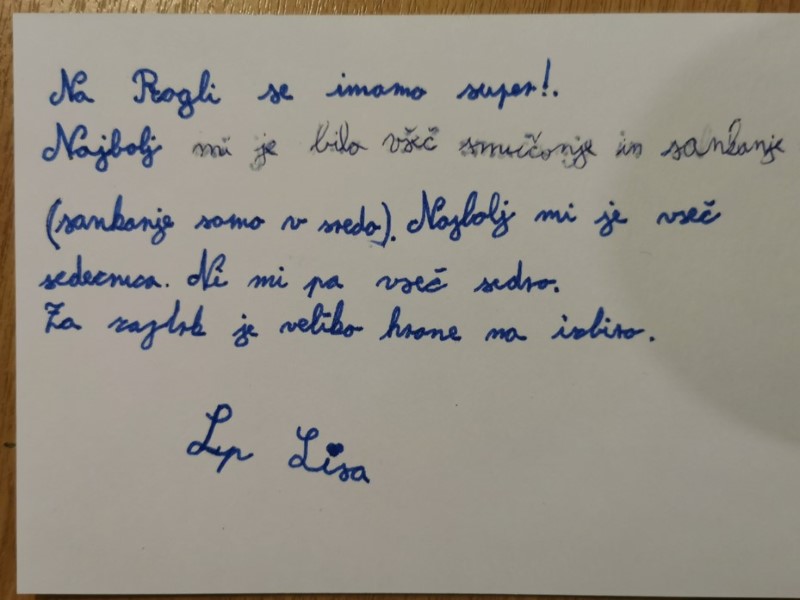 Na Rogli se imamo super!.
Najbolj mi je bilo všeč smučanje in sankanje
(sankanje samo v sredo). Najbolj mi je vseč
sedecnica. Ni mi pa vseč sedro.
Za zajtrk je veliko hrane na izbiro.
Lp Lisa